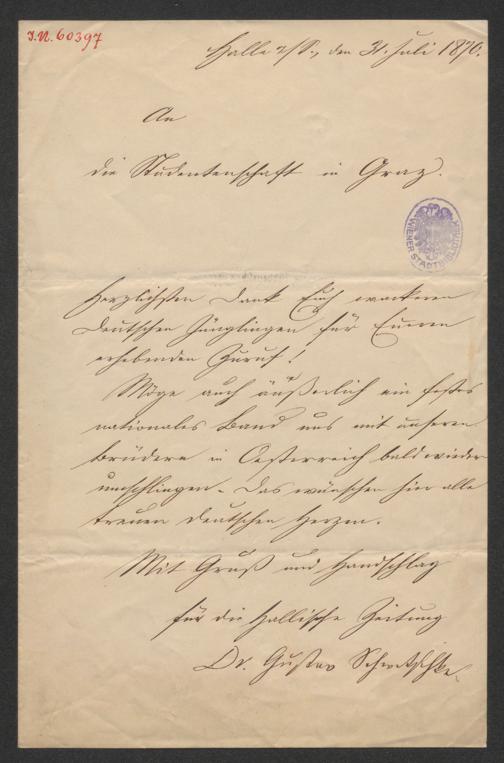 I.N. 60397
Halle a/S., den 31. Juli 1870.
An
die Studentenschaft in Graz.
WIENER STADTBIBLIOTHEK
Herzlichsten Dank Euch wackeren
deutschen Jünglingen für Eueren
erhebenden Zuruf!
Möge auch äußerlich ein festes
nationales Band uns mit unseren
Brüdern in Oesterreich bald wieder
umschlingen. Das wünschen hier alle
treuen deutschen Herzen.
Mit Gruß und Handschlag
für die Hallische Zeitung
Dr. Gustav Schwetschke.